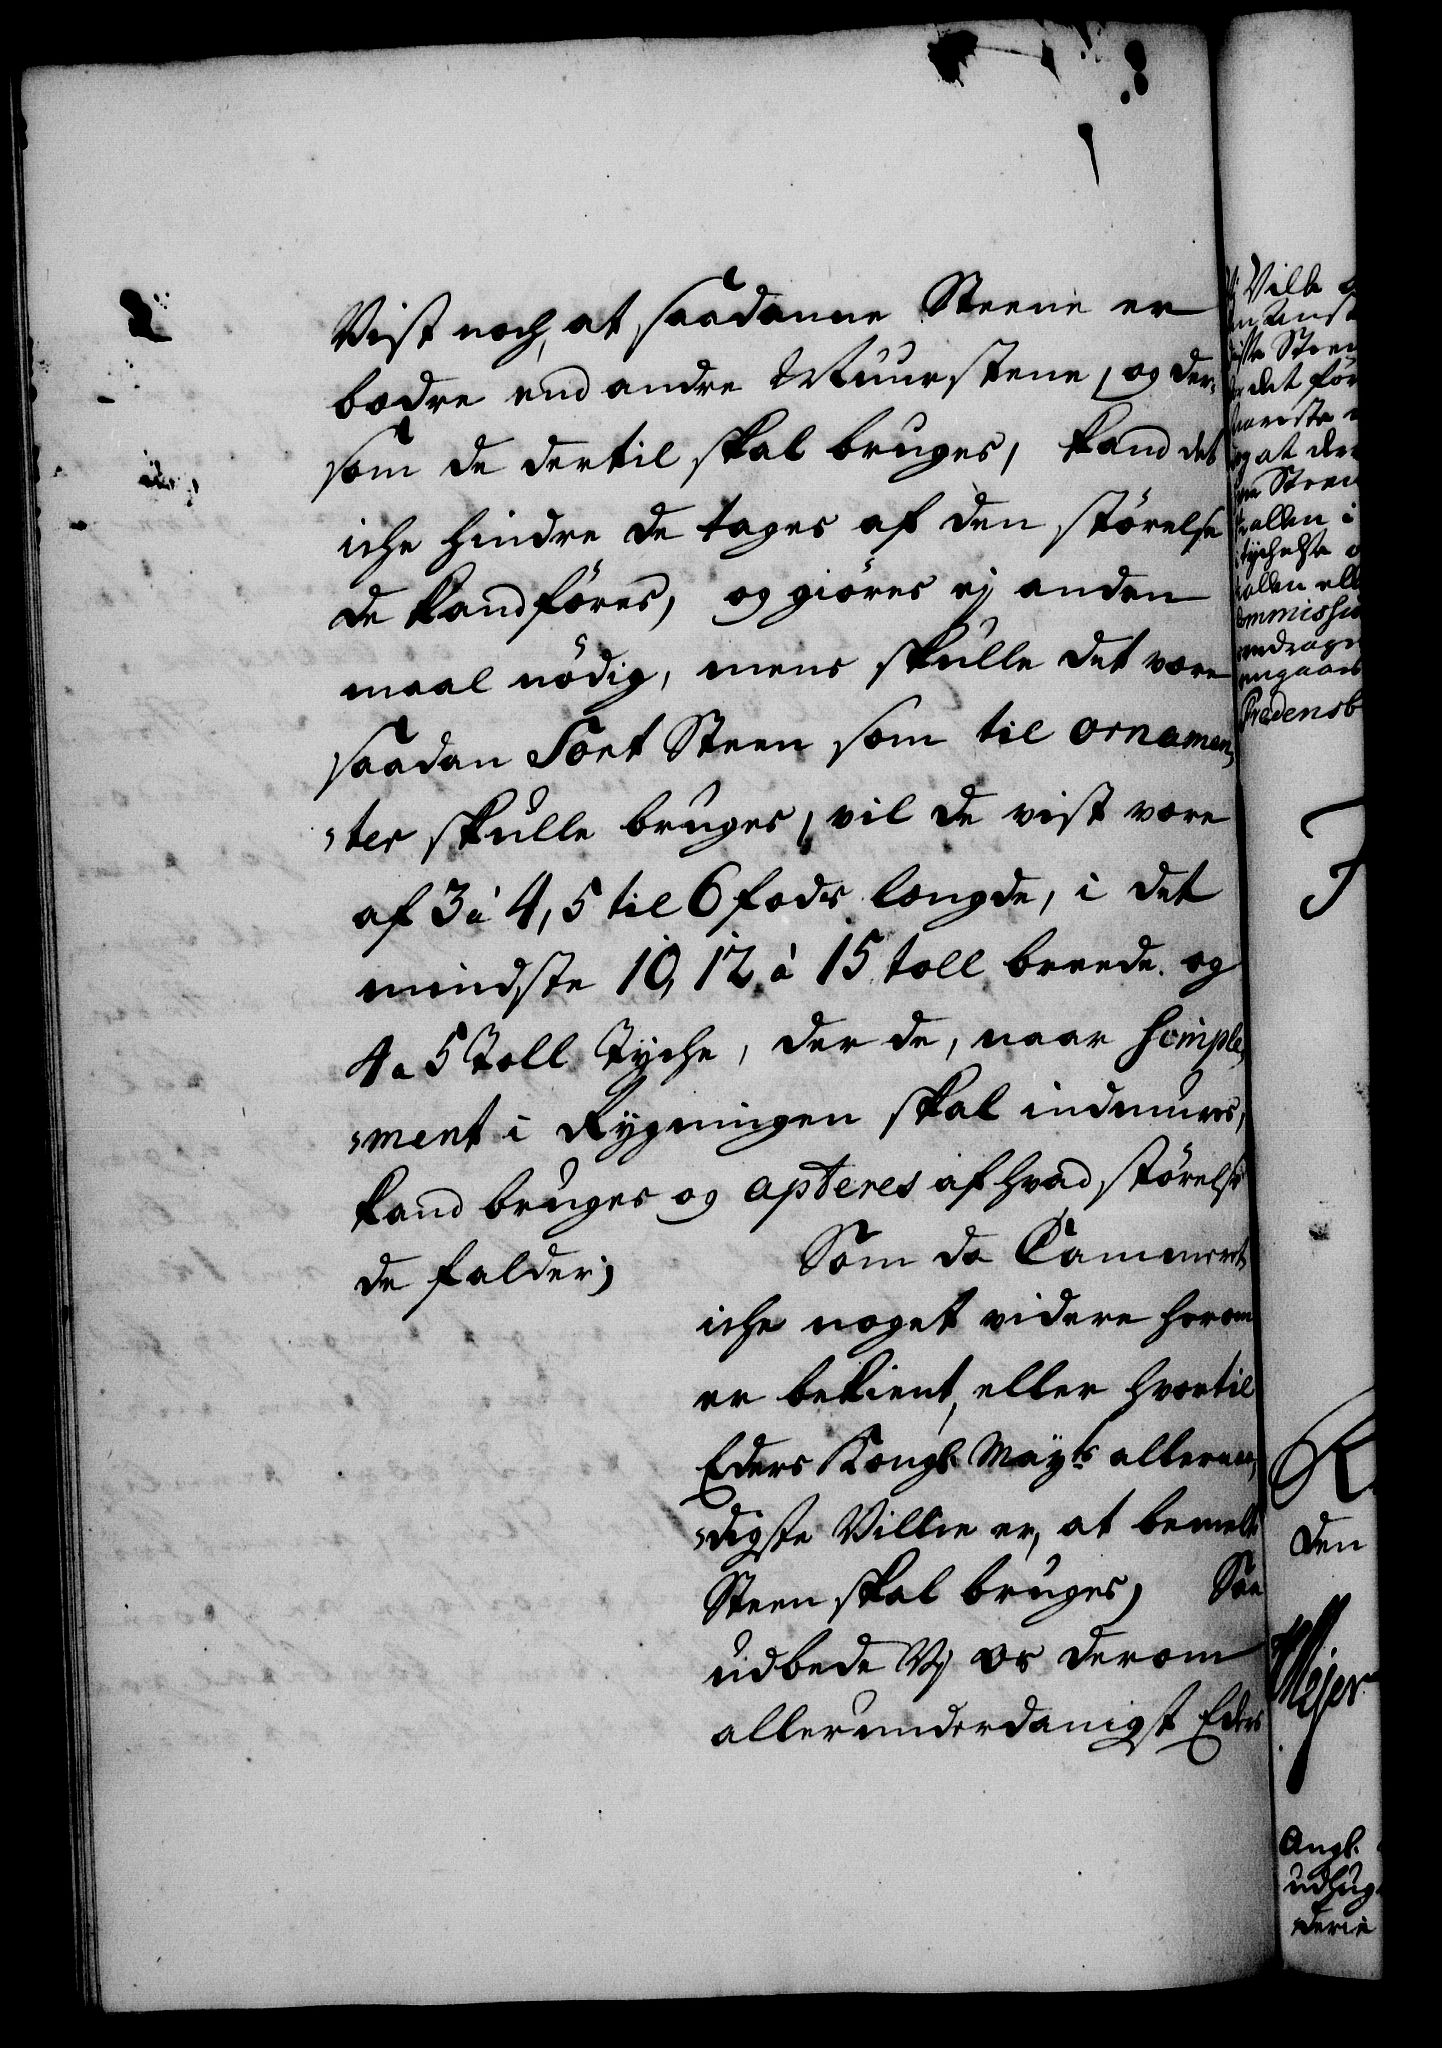 Vist noch, at saadanne Steene er
bædre end andre Muursteene, og der-
som de dertil skal bruges, kand det
iche hindre de tages af den størelse
de kand føres, og giøres ej anden
maal nödig, mens skulle det være
saadan Sort Steen som til ornamen,
,ter skulle bruges, vil de vist være
af 3 à 4, 5 til 6 fods længde, i det
mindste 10, 12 à 15 toll breede og
4 a 5 Toll Tyche, der de, naar
,ment i Rygningen skal indmuures,
kand bruges og apteres af hvad størelse
de falder;
Som da Cammeret
iche noget videre herom
er bekient, eller hvortil
Eders Kongl: Mayts allernaa,
,digste Villie er, at bemelte
Steen skal bruges; Saa
udbede Vj os derom
allerunderdanigst Eders
Ville
Steen
det før
at der
Steen
allen i
tychelse
allen ell
ommissio
Fredensb
R
den
Mejer
Angl.
udhug
derie